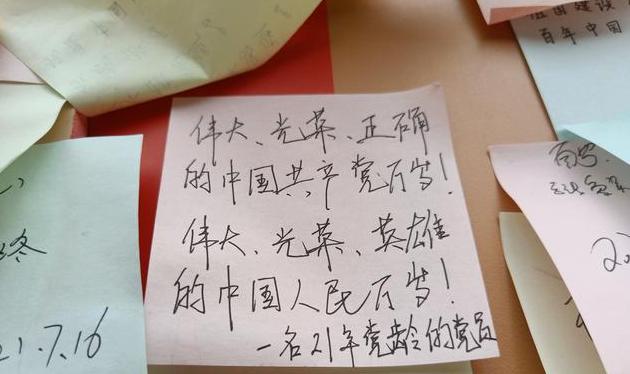 伟大、光荣、正确
的中国共产党万岁!
伟大、光荣、英雄
的中国人民万岁!
一名21年党龄的党员
21.7.16
百年中国